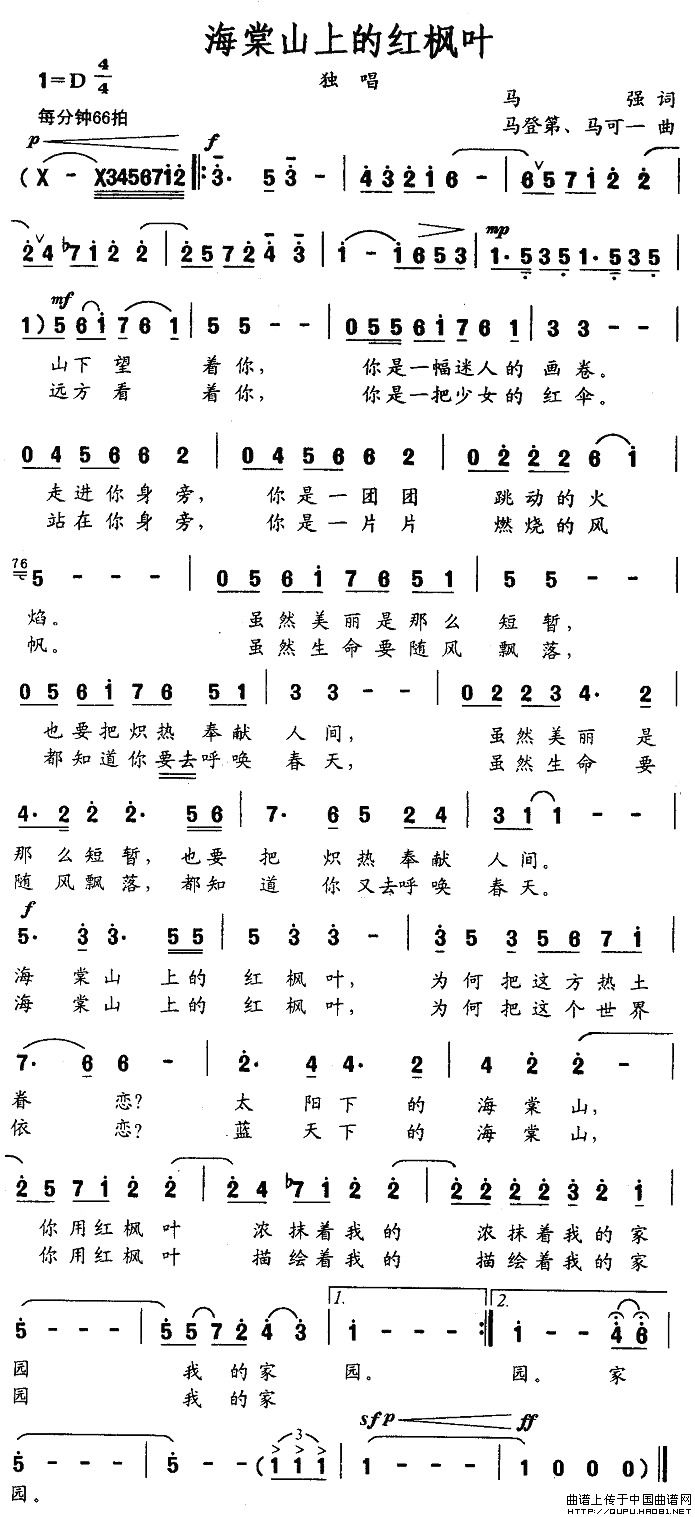 海棠山上的红枫叶
1=D 4/4
独唱
每分钟66拍
马强 词
马登第、马可一 曲
p f
(X - X34567i2 ‖: 3· 5 3 - | 4 3 2 i 6 - | 6 5 7 i 2 2 |
2 4 ♭7 i 2 2 | 2 5 7 2 4 3 | i - i 6 5 3 | 1· 5 3 5 1· 5 3 5 |
mp
mf
1) 5 6 i 7 6 1 | 5 5 - - | 0 5 5 6 i 7 6 1 | 3 3 - - |
山下望着你, 你是一幅迷人的画卷。
远方看着你, 你是一把少女的红伞。
0 4 5 6 6 2 | 0 4 5 6 6 2 | 0 2 2 2 6 i |
走进你身旁, 你是一团团 跳动的火
站在你身旁, 你是一片片 燃烧的风
76
5 - - - | 0 5 6 i 7 6 5 1 | 5 5 - - |
焰。 虽然美丽是那么短暂,
帆。 虽然生命要随风飘落,
0 5 6 i 7 6 5 1 | 3 3 - - | 0 2 2 3 4· 2 |
也要把炽热奉献人间, 虽然美丽是
都知道你要去呼唤春天, 虽然生命要
4· 2 2 2· 5 6 | 7· 6 5 2 4 | 3 1 1 - - |
那么短暂, 也要把炽热奉献人间。
随风飘落, 都知道你又去呼唤春天。
f
5· 3 3· 5 5 | 5 3 3 - | 3 5 3 5 6 7 i |
海棠山上的红枫叶, 为何把这方热土
海棠山上的红枫叶, 为何把这个世界
7· 6 6 - | 2· 4 4· 2 | 4 2 2 - |
眷恋? 太阳下的海棠山,
依恋? 蓝天下的海棠山,
2 5 7 i 2 2 | 2 4 ♭7 i 2 2 | 2 2 2 2 3 2 i |
你用红枫叶 浓抹着我的 浓抹着我的家
你用红枫叶 描绘着我的 描绘着我的家
1. 2.
5 - - - | 5 5 7 2 4 3 | i - - - :‖ i - - 4 6 |
园 我的家园。 园。 家
园 我的家
sfp ff
5 - - - | 5 - - (3 1 1 1 | 1 - - - | 1 0 0 0)‖
园。
曲谱上传于中国曲谱网
HTTP://QUPU.HAO81.NET